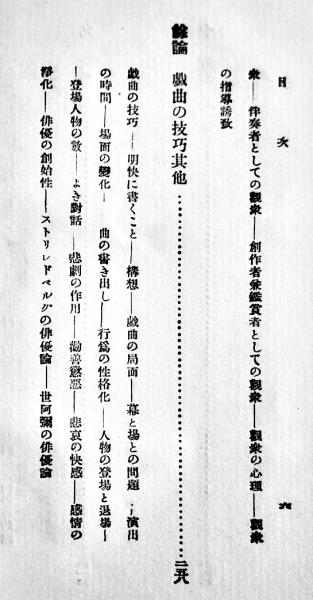 目次 六
衆——伴奏者としての觀衆——創作者兼鑑賞者としての觀衆——觀衆の心理——觀衆
の指導誘致
餘論 戲曲の技巧其他……二六
戲曲の技巧——明快に書くこと——構想——戲曲の局面——幕と場との問題——演出
の時間——場面の變化——曲の書き出し——行爲の性格化——人物の登場と退場—
—登場人物の數——よき對話——悲劇の作用——勸善懲惡——悲哀の快感——感情の
淨化——俳優の創始性——ストリンドベルグの俳優論——世阿彌の俳優論